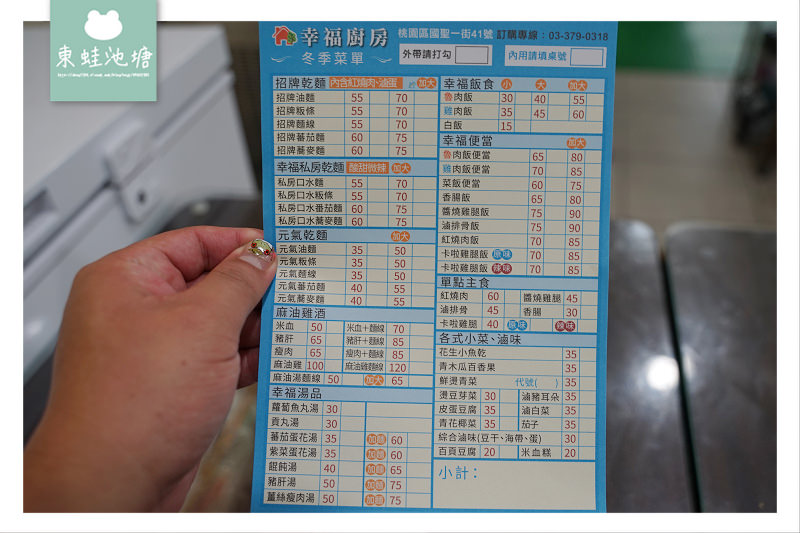 東蛙池塘
幸福廚房
冬季菜單
桃園區國聖一街41號 訂購專線：03-379-0318
外帶請打勾
內用請填桌號
招牌乾麵 內含紅燒肉、滷蛋 加大
招牌油麵 55 70
招牌粄條 55 70
招牌麵線 55 70
招牌蕃茄麵 60 75
招牌蕎麥麵 60 75
幸福私房乾麵 酸甜微辣 加大
私房口水麵 55 70
私房口水粄條 55 70
私房口水蕃茄麵 60 75
私房口水蕎麥麵 60 75
元氣乾麵 加大
元氣油麵 35 50
元氣粄條 35 50
元氣麵線 35 50
元氣蕃茄麵 40 55
元氣蕎麥麵 40 55
麻油雞酒
米血 50 米血+麵線 70
豬肝 65 豬肝+麵線 85
瘦肉 65 瘦肉+麵線 85
麻油雞 100 麻油雞麵線 120
麻油湯麵線 50 加大 65
幸福湯品
蘿蔔魚丸湯 30
貢丸湯 30
蕃茄蛋花湯 35 加麵 60
紫菜蛋花湯 35 加麵 60
餛飩湯 40 加麵 65
豬肝湯 50 加麵 75
薑絲瘦肉湯 50 加麵 75
幸福飯食 小 大 加大
魯肉飯 30 40 55
雞肉飯 35 45 60
白飯 15
幸福便當 加大
魯肉飯便當 65 80
雞肉飯便當 70 85
菜飯便當 60 75
香腸飯 65 80
醬燒雞腿飯 75 90
滷排骨飯 75 90
紅燒肉飯 70 85
卡啦雞腿飯 原味 70 85
卡啦雞腿飯 辣味 70 85
單點主食
紅燒肉 60 醬燒雞腿 45
滷排骨 45 香腸 30
卡啦雞腿 40 原味 辣味
各式小菜、滷味
花生小魚乾 35
青木瓜百香果 35
鮮燙青菜 代號( ) 35
燙豆芽菜 30 滷豬耳朵 35
皮蛋豆腐 35 滷白菜 35
青花椰菜 35 茄子 35
綜合滷味(豆干、海帶、蛋) 30
百頁豆腐 20 米血糕 20
小計：